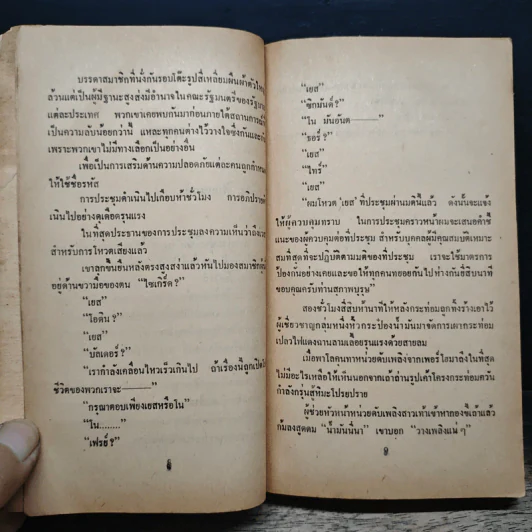 บรรดาสมาชิกที่นั่งกันรอบโต๊ะรูปสี่เหลี่ยมผืนผ้าตัวใหญ่
ล้วนแต่เป็นผู้มีฐานะสูงส่งมีอำนาจในคณะรัฐมนตรีของรัฐบาล
แต่ละประเทศ พวกเขาเคยพบกันมาก่อนภายใต้สถานการณ์
เป็นความลับน้อยกว่านี้ และทุกคนต่างไว้วางใจซึ่งกันและกัน
เพราะพวกเขาไม่มีทางเลือกเป็นอย่างอื่น
เพื่อเป็นการเสริมด้านความปลอดภัยแต่ละคนถูกกำหนด
ให้ใช้ชื่อรหัส
การประชุมดำเนินไปเกือบห้าชั่วโมง การอภิปราย
เนินไปอย่างดุเดือดรุนแรง
ในที่สุดประธานของการประชุมลงความเห็นว่าถึงเวลา
สำหรับการโหวตเสียงแล้ว
เขาลุกขึ้นยืนหลังตรงสูงสง่าแล้วหันไปมองสมาชิก
อยู่ด้านขวามือของตน “ไซเกิร์ด?”
“เยส”
“โอดิน?”
“เยส”
“บัลเดอร์?”
“เรากำลังเคลื่อนไหวเร็วเกินไป ถ้าเรื่องนี้ถูกเปิด
ชีวิตของพวกเราจะ———”
“กรุณาตอบเพียงเยสหรือโน”
“โน........”
“เฟรย์?”
8
“เยส”
“ซิกมันด์?”
“โน มันอันต———”
“ธอร์?”
“เยส”
“ไทร์”
“เยส”
“ผมโหวต 'เยส' ที่ประชุมผ่านมตินี้แล้ว ดังนั้นจะแจ้ง
ให้ผู้ควบคุมทราบ ในการประชุมคราวหน้าผมจะเสนอคำชี้
แนะของผู้ควบคุมต่อที่ประชุม สำหรับบุคคลผู้มีคุณสมบัติเหมาะ
สมที่สุดที่จะปฏิบัติตามมติของที่ประชุม เราจะใช้มาตรการ
ป้องกันอย่างเคยและขอให้ทุกคนทยอยกันไปห่างกันยี่สิบนาที
ขอบคุณครับท่านสุภาพบุรุษ”
สองชั่วโมงสี่สิบห้านาทีให้หลังกระท่อมลูกทิ้งร้างเอาไว้
ผู้เชี่ยวชาญกลุ่มหนึ่งหิ้วกระป๋องน้ำมันมาจัดการเผากระท่อม
เปลวไฟแดงฉานลามเลื้อยรุนแรงด้วยสายลม
เมื่อพาโลคุนทาหน่วยดับเพลิงจากเพอร์โฮมาถึงในที่สุด
ไม่มีอะไรเหลือให้เห็นนอกจากเถ้าถ่านรูปเค้าโครงกระท่อมควัน
กำลังกรุ่นสู่หิมะโปรยปราย
ผู้ช่วยหัวหน้าหน่วยดับเพลิงสาวเท้าเข้าหากองขี้เถ้าแล้ว
ก้มลงสูดดม “น้ำมันนี่นา” เขาบอก “วางเพลิงแน่ๆ”
9